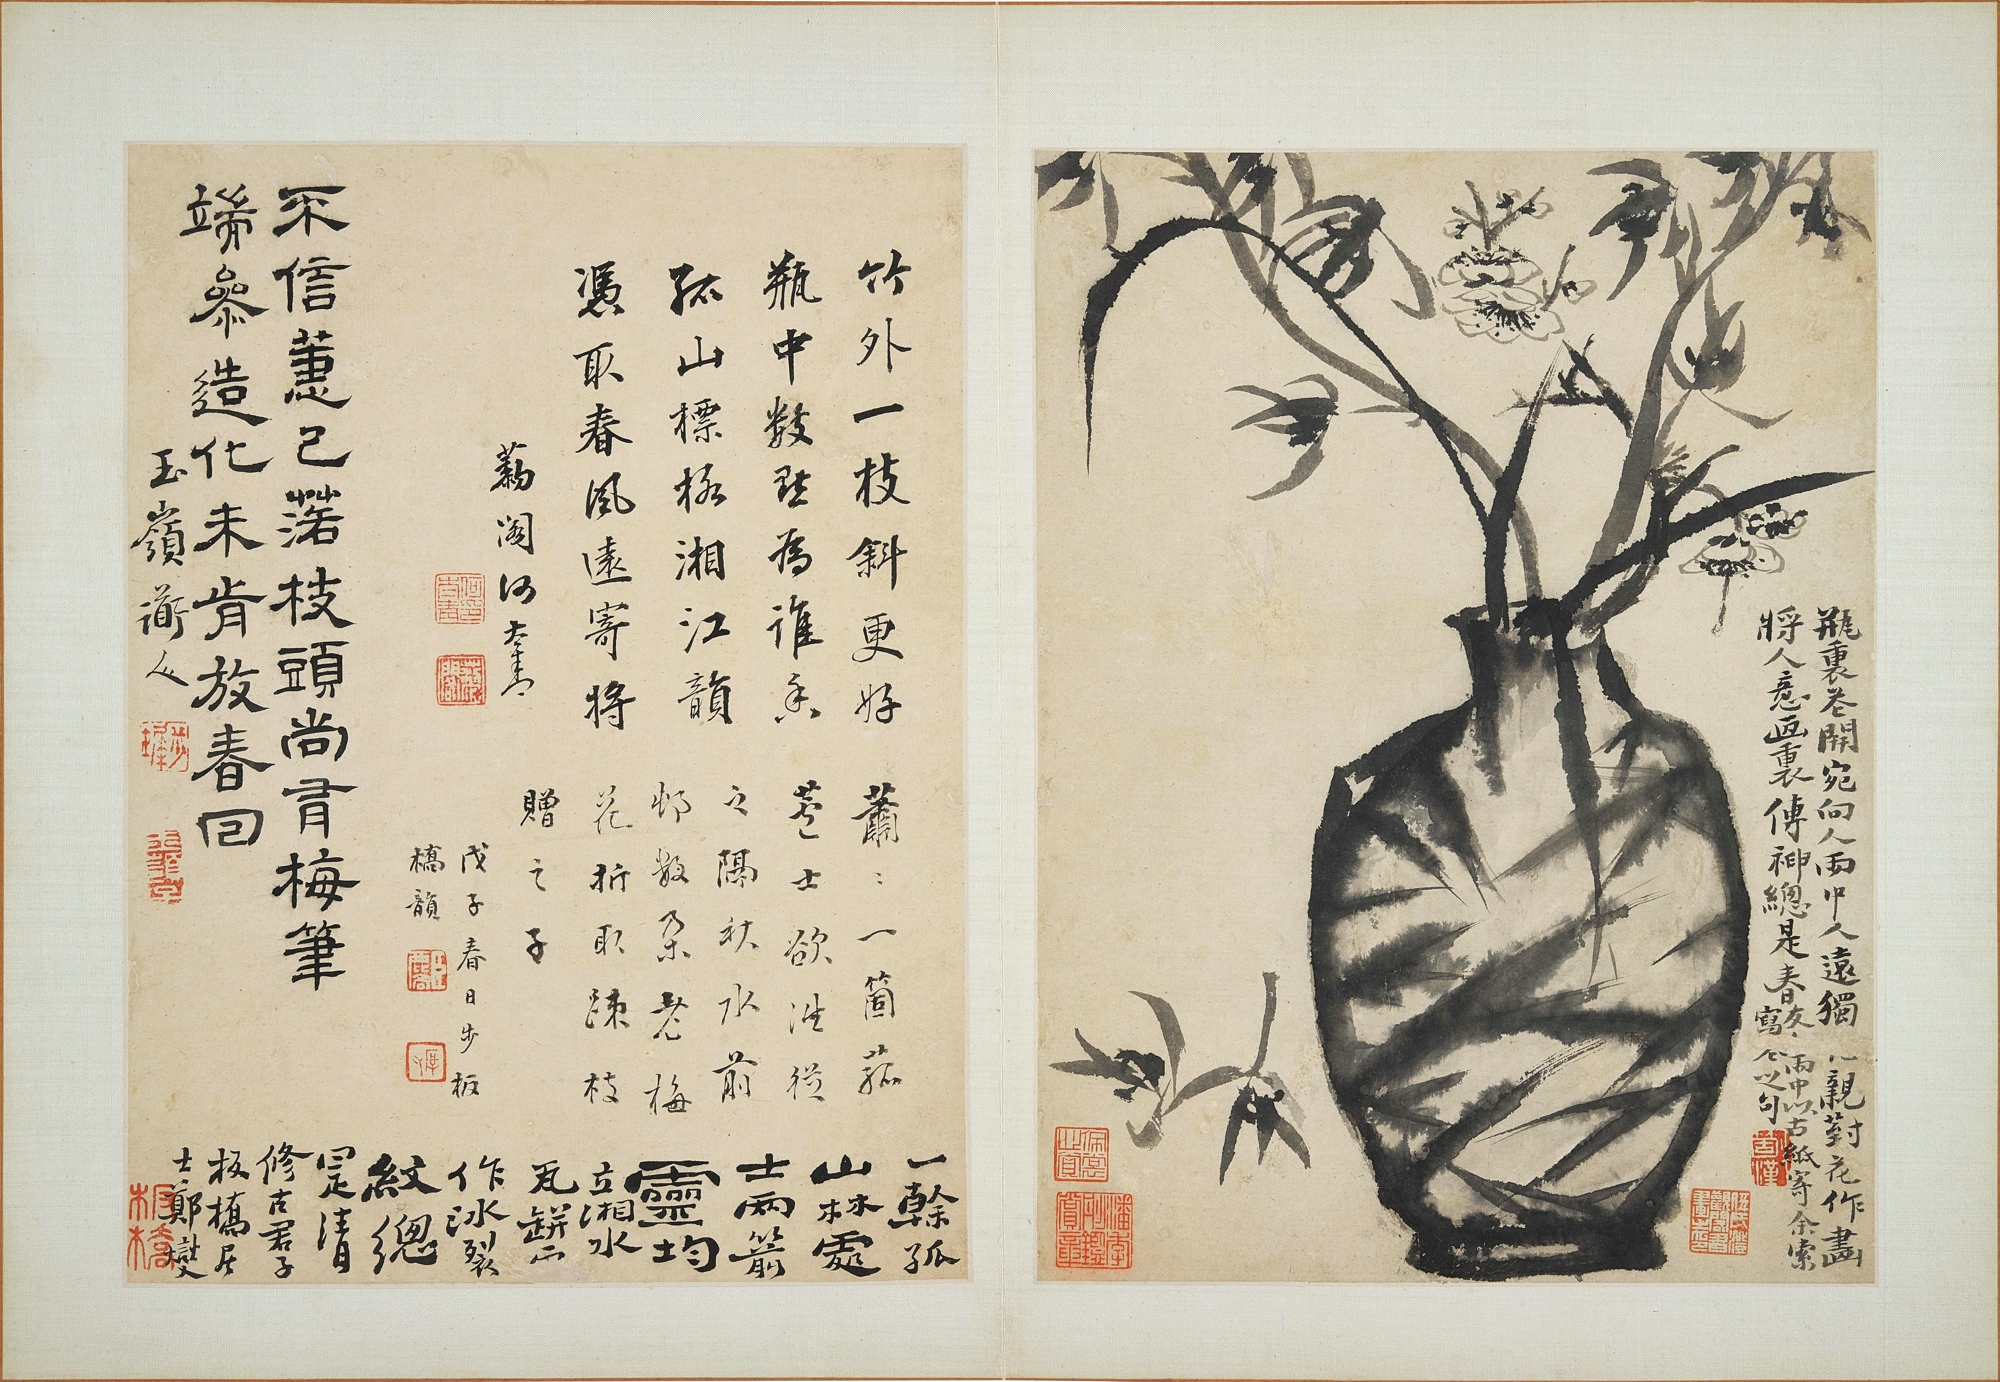 瓶裏花開宛向人雨中人遠獨親對花作畫
將人意画裏傳神總是春友雨中以古紙寄余索
寫以之句
竹外一枝斜更好
瓶中數點為誰香
孤山標格湘江韻
憑取春風遠寄將
閣
蕭〻一箇孤
士欲從
之隔秋水前
邨數朵老梅
花折取疎枝
贈之子
戊子春日步板
橋韻
一榦孤
山林處
士兩箭
靈均
立湘水
瓦缾正
作冰裂
紋總
是清
修古君子
板橋居
士鄭燮
不信蕙已落枝頭尚有梅筆
端參造化未肯放春回
玉嶺人